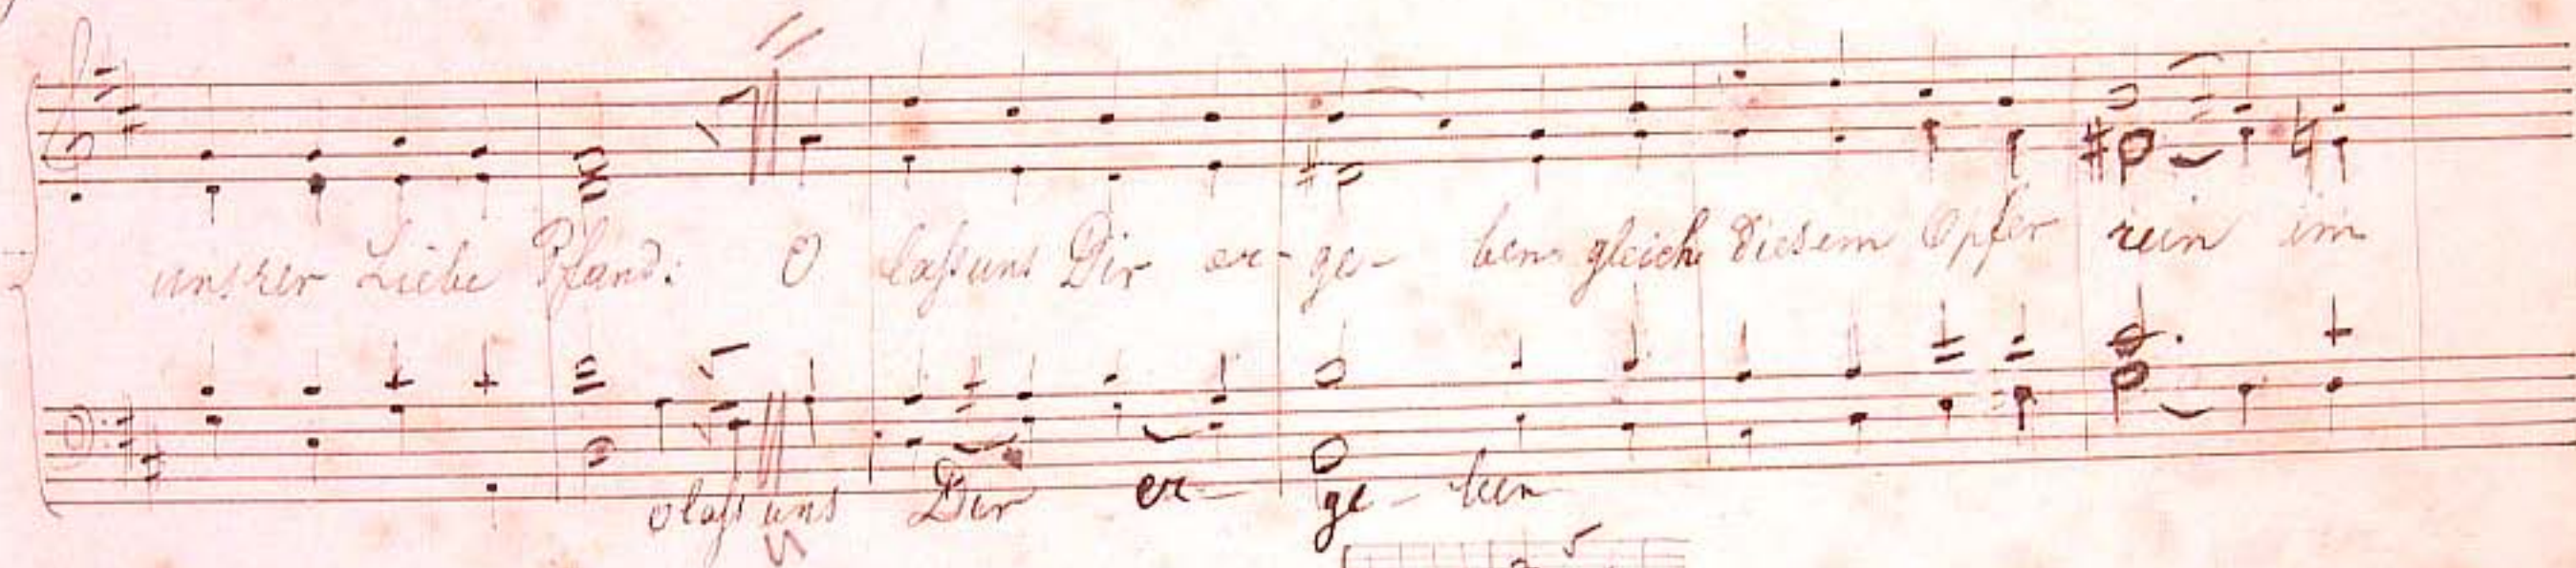 unsrer Liebe Pfand: O laß uns Dir er- ge- ben gleich diesem Opfer rein im
o laß uns Dir er- ge- ben